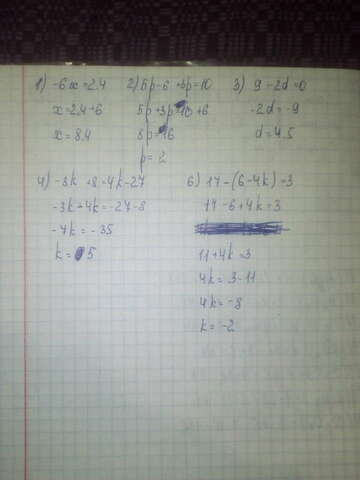 1) -6x=2.4
x=2.4+6
x=8.4
2) 5p-6+3p=10
5p+3p=10+6
8p=16
p=2
3) 9-2d=0
-2d=-9
d=4.5
4) -3k+8=4k-27
-3k+4k=-27-8
-7k=-35
k=5
6) 17-(6-4k)=3
17-6+4k=3
11+4k=3
4k=3-11
4k=-8
k=-2